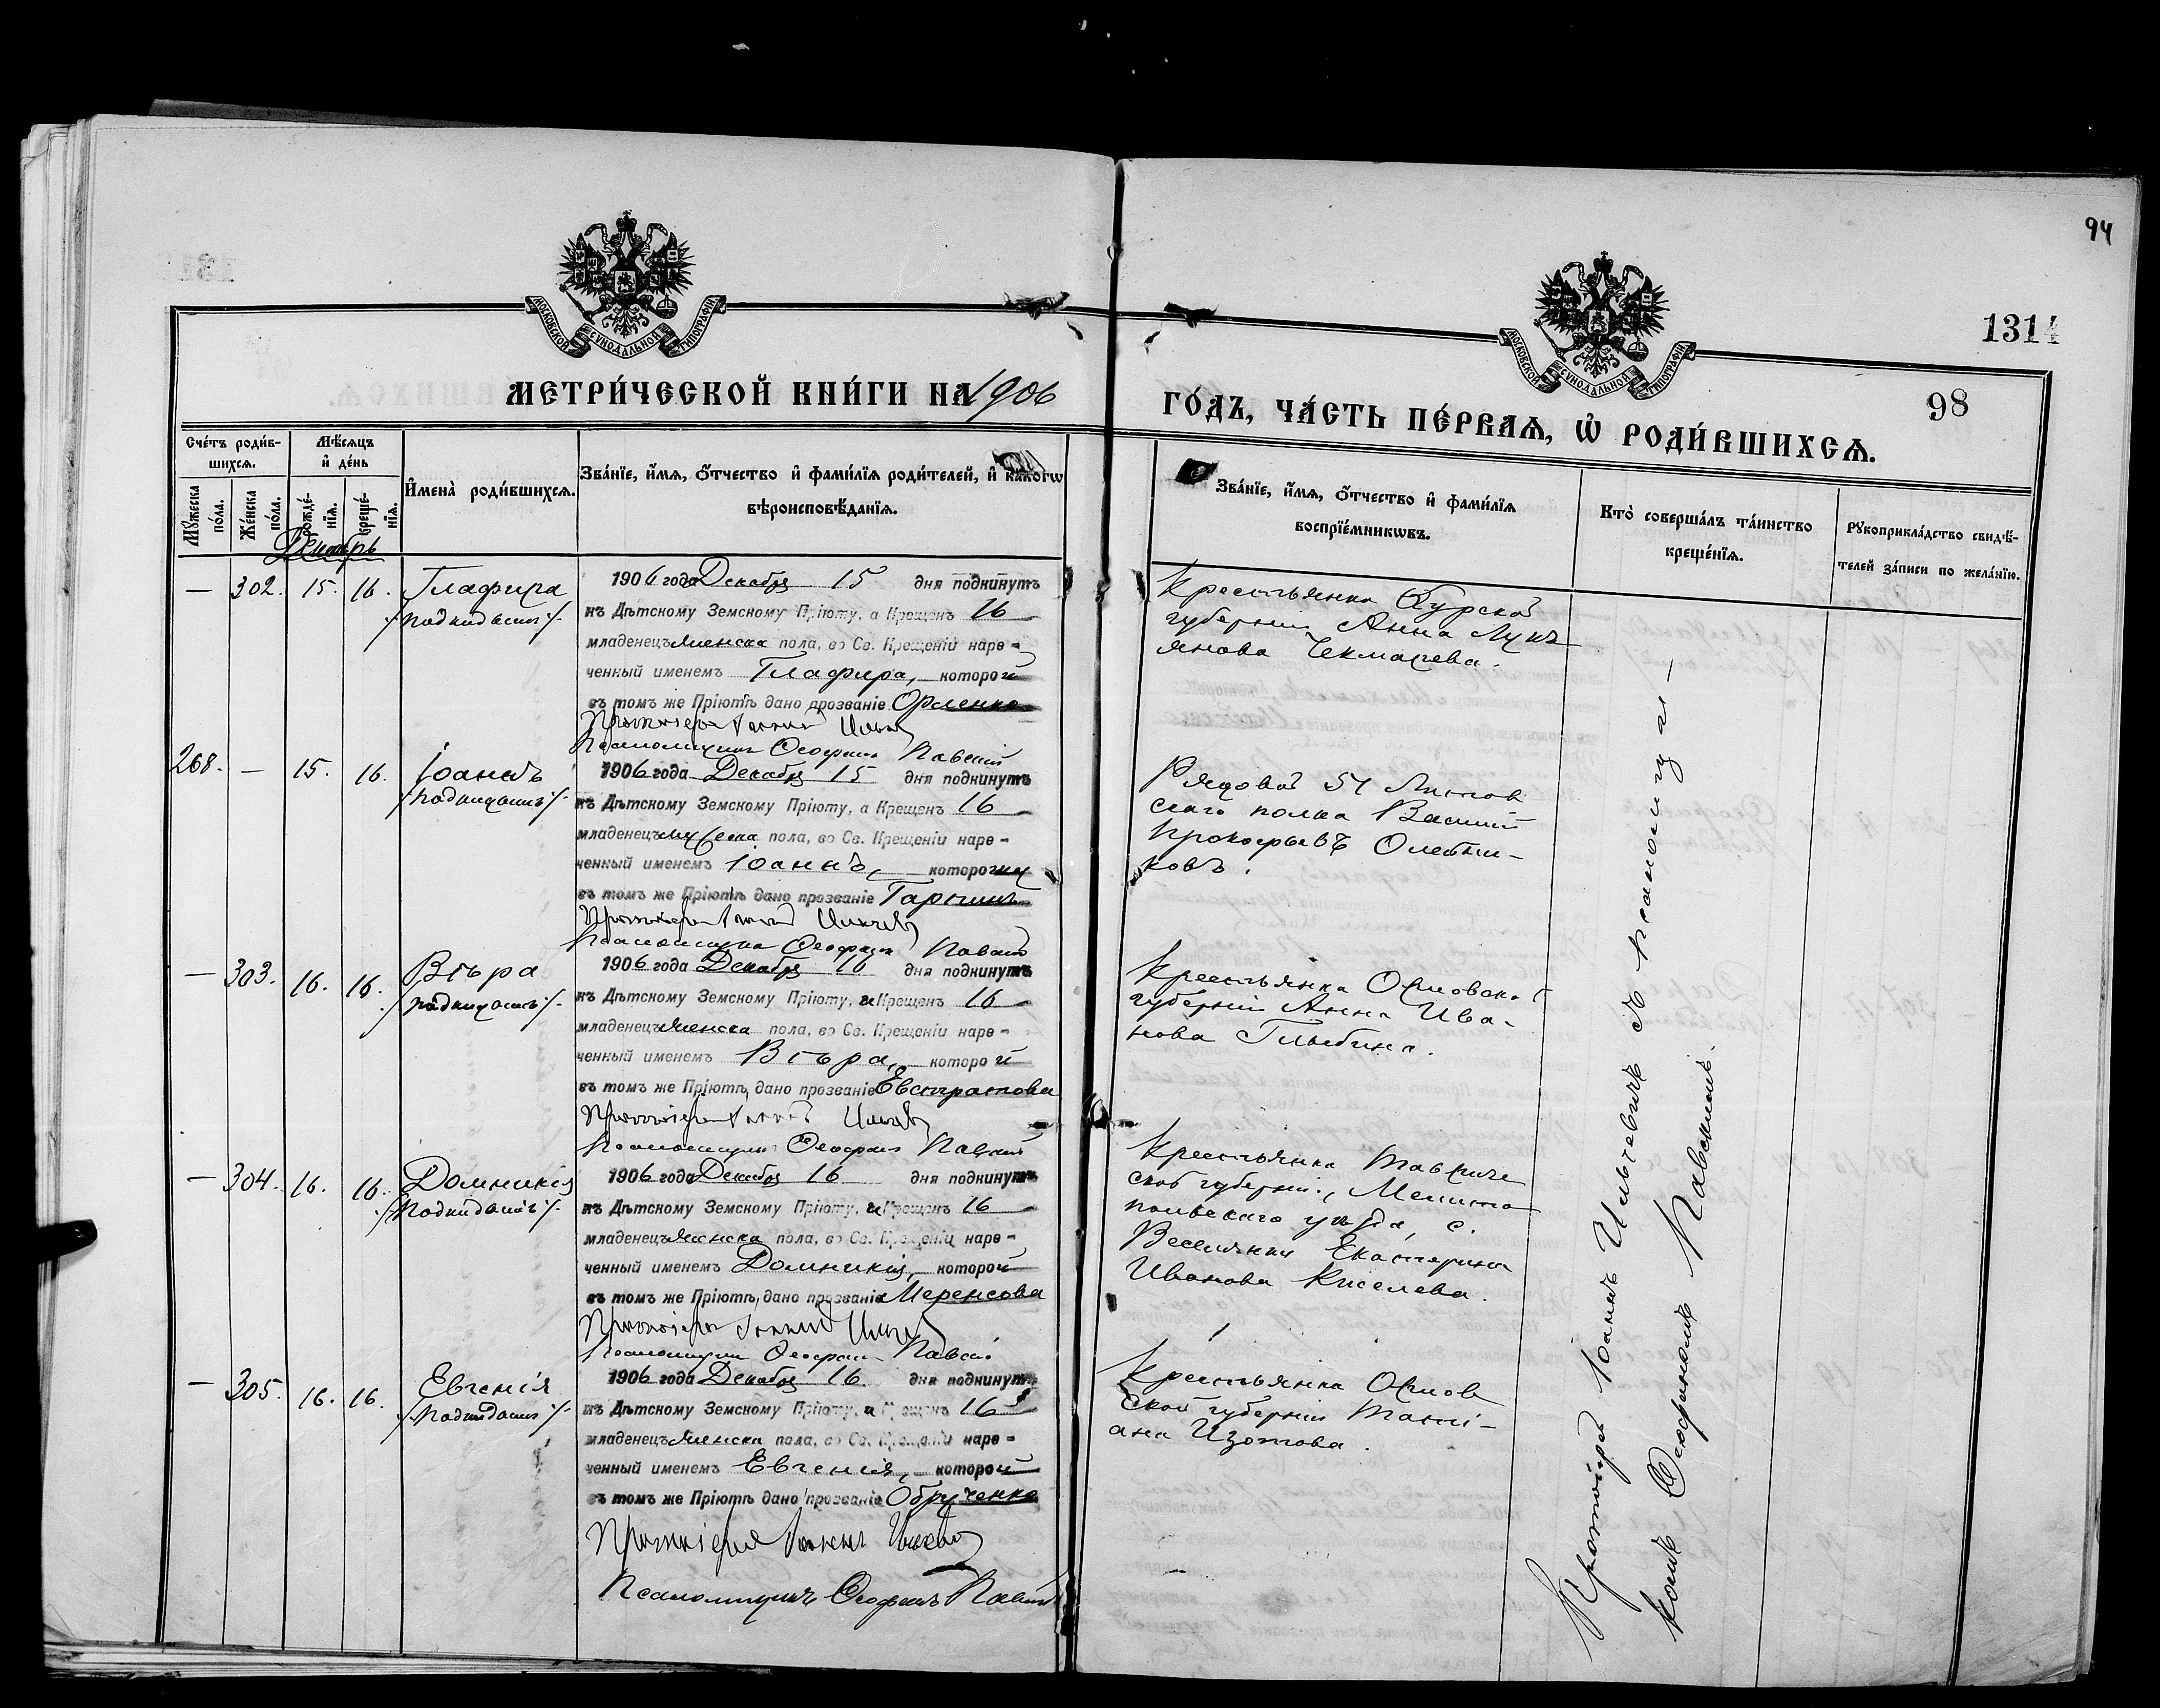 94
1314
98
МОСКОВСКОЙ СУНОДАЛЬНОЙ ТИПОГРАФІИ
МОСКОВСКОЙ СУНОДАЛЬНОЙ ТИПОГРАФІИ
МЕТРИ́ЧЕСКОЙ КНИ́ГИ НА 1906
ГО́ДЪ, ЧА́СТЬ ПЕ́РВАѦ, Ѡ РОДИ́ВШИХСѦ.
Сче́тъ роди́в-
шихсѧ.
Мꙋ́жеска по́ла.
Же́нска по́ла.
Мѣ́сѧцъ
и҆ де́нь
рожде́-
нїѧ.
креще́-
нїѧ.
И҆мена̀ роди́вшихсѧ.
Зва́нїе, и҆́мѧ, ѻ҆́тчество и҆ фами́лїѧ роди́телей, и҆ како́гѡ
вѣроисповѣ́данїѧ.
Зва́нїе, и҆́мѧ, ѻ҆́тчество и҆ фами́лїѧ
воспрїе́мникѡвъ.
Кто̀ соверша́лъ та́инство
креще́нїѧ.
Рꙋкоприкла́дство свидѣ́-
телей за́писи по жела́нїю.
Декабрь
— 302. 15. 16. Глафира
/подкидышъ/.
1906 года Декабря 15 дня подкинутъ
къ Дѣтскому Земскому Пріюту, а Крещенъ 16
младенецъ женска пола, во Св. Крещеніи наре-
ченный именемъ Глафира, которой
въ томъ же Пріютѣ дано прозваніе Орленко
Протоіерей Іоаннъ
Псаломщикъ Ѳеофанъ Павскій
Крестьянка Курской
губерніи Анна Лукь
янова Чекмарева.
268. — 15. 16. Іоаннъ
/подкидышъ/.
1906 года Декабря 15 дня подкинутъ
къ Дѣтскому Земскому Пріюту, а Крещенъ 16
младенецъ мужеска пола, во Св. Крещеніи наре-
ченный именемъ Іоаннъ, которому
въ томъ же Пріютѣ дано прозваніе Гаршинъ
Протоіерей Іоаннъ
Псаломщикъ Ѳеофанъ Павскій
Рядовой 51 Литов
скаго полка Василій
Прокофьевъ Олейни-
ковъ.
— 303. 16. 16. Вѣра
/подкидышъ/.
1906 года Декабря 16 дня подкинутъ
къ Дѣтскому Земскому Пріюту, и Крещенъ 16
младенецъ женска пола, во Св. Крещеніи наре-
ченный именемъ Вѣра, которой
въ томъ же Пріютѣ дано прозваніе Евстратова
Протоіерей Іоаннъ
Псаломщикъ Ѳеофанъ Павскій
Крестьянка Орловской
губерніи Анна Ива-
нова Глыбина.
— 304. 16. 16. Домникія
/подкидышъ/.
1906 года Декабря 16 дня подкинутъ
къ Дѣтскому Земскому Пріюту, и Крещенъ 16
младенецъ женска пола, во Св. Крещеніи наре-
ченный именемъ Домникія, которой
въ томъ же Пріютѣ дано прозваніе
Протоіерей Іоаннъ
Псаломщикъ Ѳеофанъ Павскій
Крестьянка Тавриче
ской губерніи, Мелито
польскаго уѣзда, с.
Веселянки Екатерина
Иванова Киселева.
— 305. 16. 16. Евгенія
/подкидышъ/.
1906 года Декабря 16 дня подкинутъ
къ Дѣтскому Земскому Пріюту, и Крещенъ 16
младенецъ женска пола, во Св. Крещеніи наре-
ченный именемъ Евгенія, которой
въ томъ же Пріютѣ дано прозваніе Обрученко
Протоіерей Іоаннъ
Псаломщикъ Ѳеофанъ Павскій
Крестьянка Орлов
ской губерніи Тати-
ана Изотова.
Протоіерей Іоаннъ Ильчевичъ съ псаломщи—
комъ Ѳеофаномъ Павскимъ.